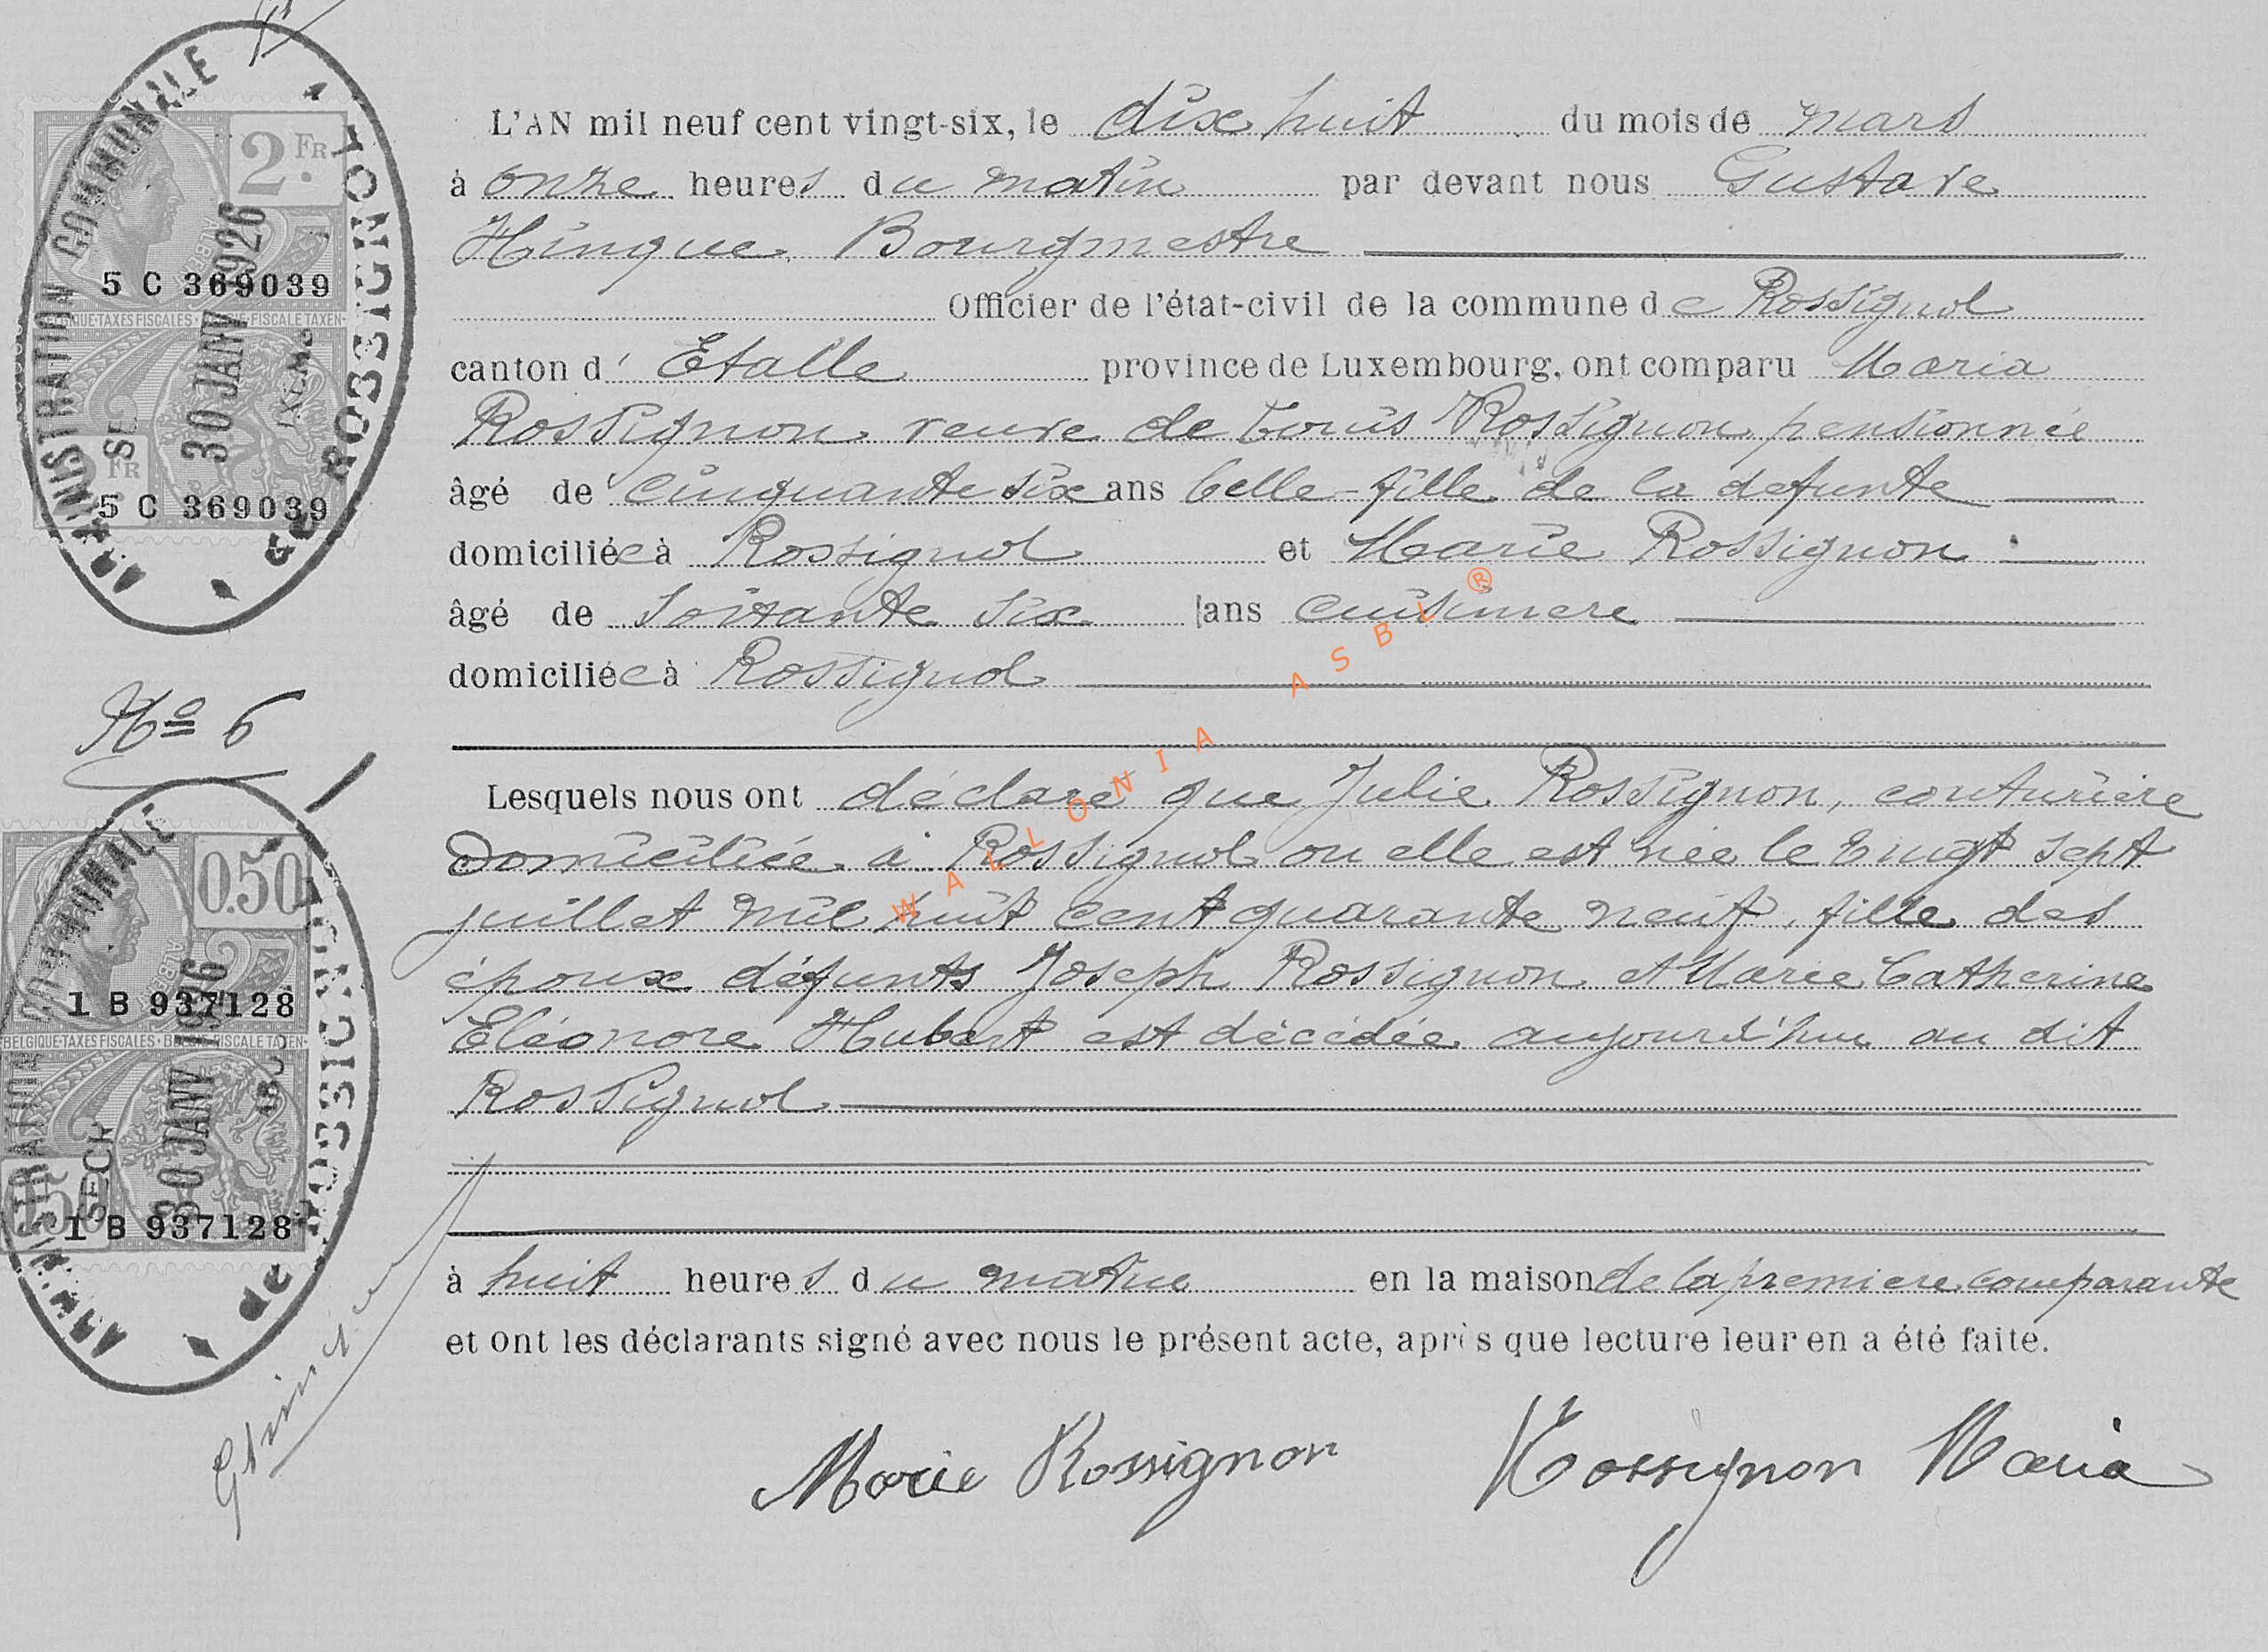 L'AN mil neuf cent vingt-six, le dixe huit du mois de mars
à onze heures du matin par devant nous Gustave
Hinque Bourgmestre
Officier de l'état-civil de la commune de Rossignol
canton d' Etalle province de Luxembourg, ont comparu Maria
Rossignon veuve de Louis Rossignon pensionnée
âgé de cinquante six ans belle-fille de la defunte
domiciliée à Rossignol et Marie Rossignon
âgé de soixante six ans cuisiniere
domiciliée à Rossignol
Lesquels nous ont déclaré que Julie Rossignon, couturière
Domiciliée à Rossignol ou elle est née le vingt sept
juillet mil huit cent quarante neuf, fille des
époux défunts Joseph Rossignon et Marie Catherine
Eléonore Hubert est décédée aujourd'hui au dit
Rossignol
à huit heures du matin en la maison de la premiere comparante
et ont les déclarants signé avec nous le présent acte, après que lecture leur en a été faite.
Marie Rossignon Rossignon Maria
ADMINISTRATION COMMUNALE de ROSSIGNOL
2 FR
ALBE
5 C 369039
30 JANV 1926
BELGIQUE-TAXES FISCALES · BELGIE-FISCALE TAXEN
FR
5 C 369039
No 6
ADMINISTRATION COMMUNALE de ROSSIGNOL
0.50
ALBE
1 B 937128
30 JANV 1926
BELGIQUE-TAXES FISCALES · BELGIE-FISCALE TAXEN
1 B 937128
WALLONIA ASBL ®